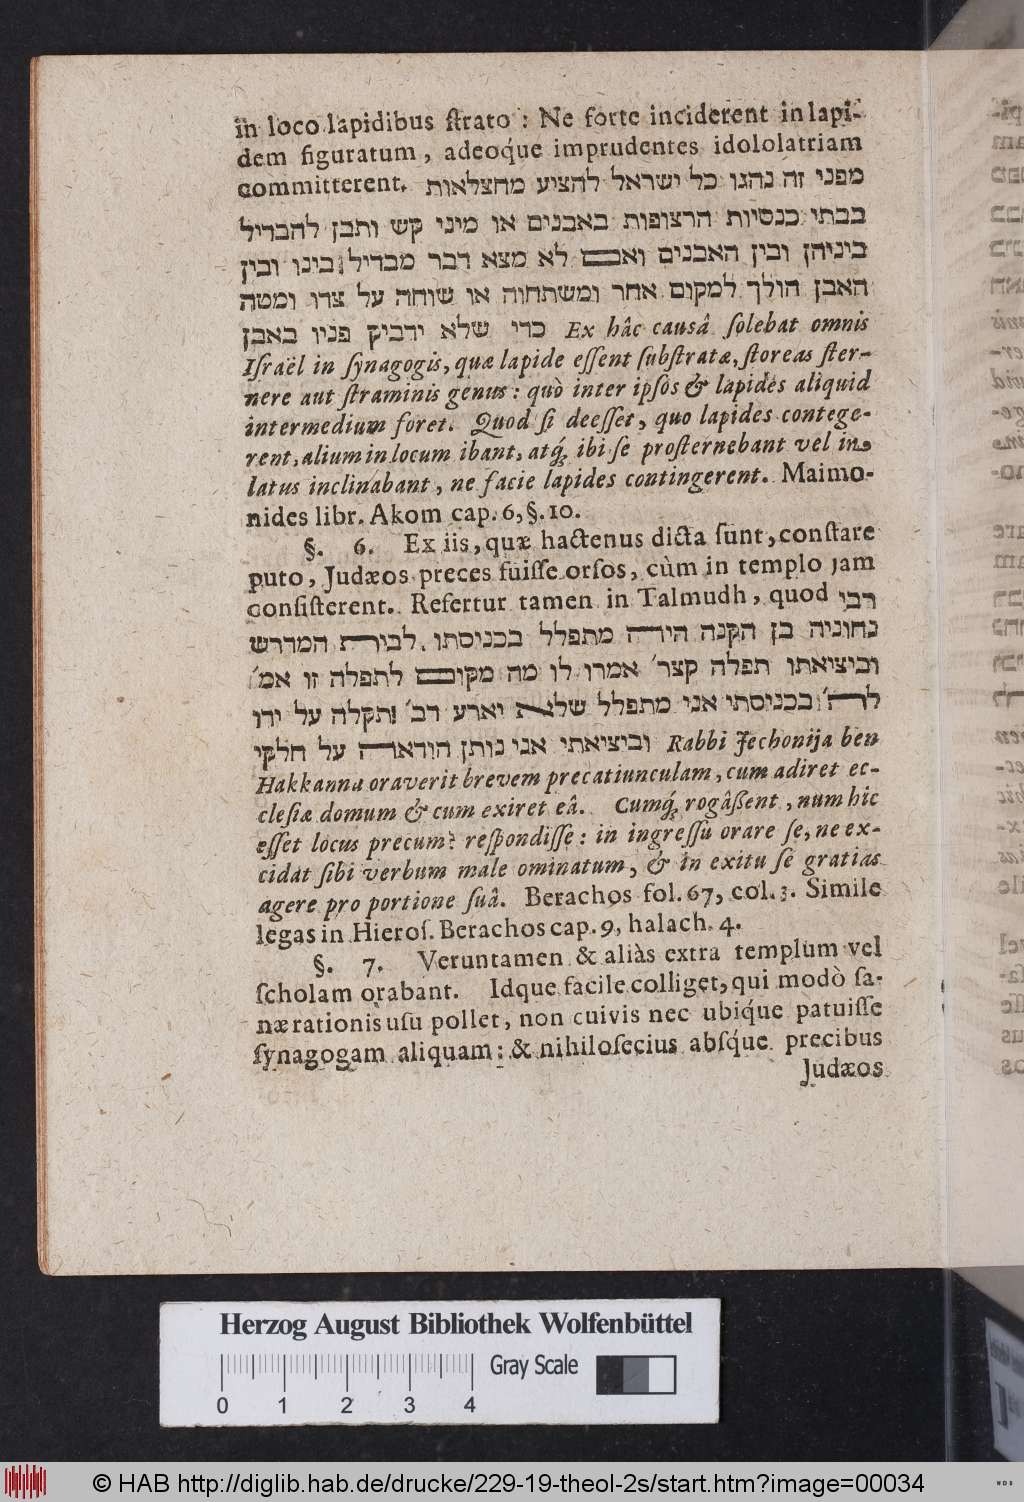 in loco lapidibus ſtrato : Ne forte inciderent in lapi-
dem figuratum, adeoq́ue imprudentes idololatriam
committerent. מפני זה נהגו כל ישראל להציע מחצלאות
בבתי כנסיות הרצופות באבנים או מיני קש ותבן להבדיל
ביניהן ובין האבנים ואם לא מצא דבר מבדיל בינו ובין
האבן הולך למקום אחר ומשתחוה או שוחה על צדו ומטה
כדי שלא ידביק פניו באבן Ex hâc causâ ſolebat omnis
Iſraël in ſynagogis, quæ lapide eſſent ſubſtratæ, ſtoreas ſter-
nere aut ſtraminis genus: quò inter ipſos & lapides aliquid
intermedium foret. Quod ſi deeſſet, quo lapides contege-
rent, alium in locum ibant, atq́; ibi ſe proſternebant vel in
latus inclinabant, ne facie lapides contingerent. Maimo-
nides libr. Akom cap. 6, §. 10.
§. 6. Ex iis, quæ hactenus dicta ſunt, conſtare
puto, Judæos preces fuiſſe orſos, cùm in templo jam
conſiſterent. Refertur tamen in Talmudh, quod רבי
נחוניה בן הקנה היה מתפלל בכניסתו לבית המדרש
וביציאתו תפלה קצר׳ אמרו לו מה מקום לתפלה זו אמ׳
לה׳ בכניסתי אני מתפלל שלא יארע דב׳ תקלה על ידו
וביציאתי אני נותן הודאה על חלקי Rabbi Jechonija ben
Hakkanna oraverit brevem precatiunculam, cum adiret ec-
cleſiæ domum & cum exiret eâ. Cumq́; rogâßent, num hic
eſſet locus precum? reſpondiſſe: in ingreſſu orare ſe, ne ex-
cidat ſibi verbum male ominatum, & in exitu ſe gratias
agere pro portione ſuâ. Berachos fol. 67, col. 3. Simile
legas in Hieroſ. Berachos cap. 9, halach. 4.
§. 7. Veruntamen & aliàs extra templum vel
ſcholam orabant. Idque facile colliget, qui modò ſa-
næ rationis uſu pollet, non cuivis nec ubiq́ue patuiſſe
ſynagogam aliquam: & nihiloſecius abſq́ue precibus
Judæos
Herzog August Bibliothek Wolfenbüttel
Gray Scale
0 1 2 3 4
© HAB http://diglib.hab.de/drucke/229-19-theol-2s/start.htm?image=00034